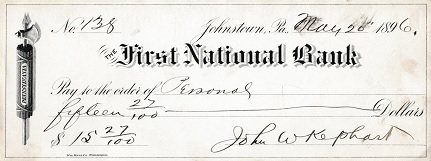 No. 138 Johnstown, Pa. May 20th 1896.
THE First National Bank
Pay to the order of Personal
fifteen 27/100 Dollars
$ 15 27/100 John W Kephart
PENNSYLVANIA